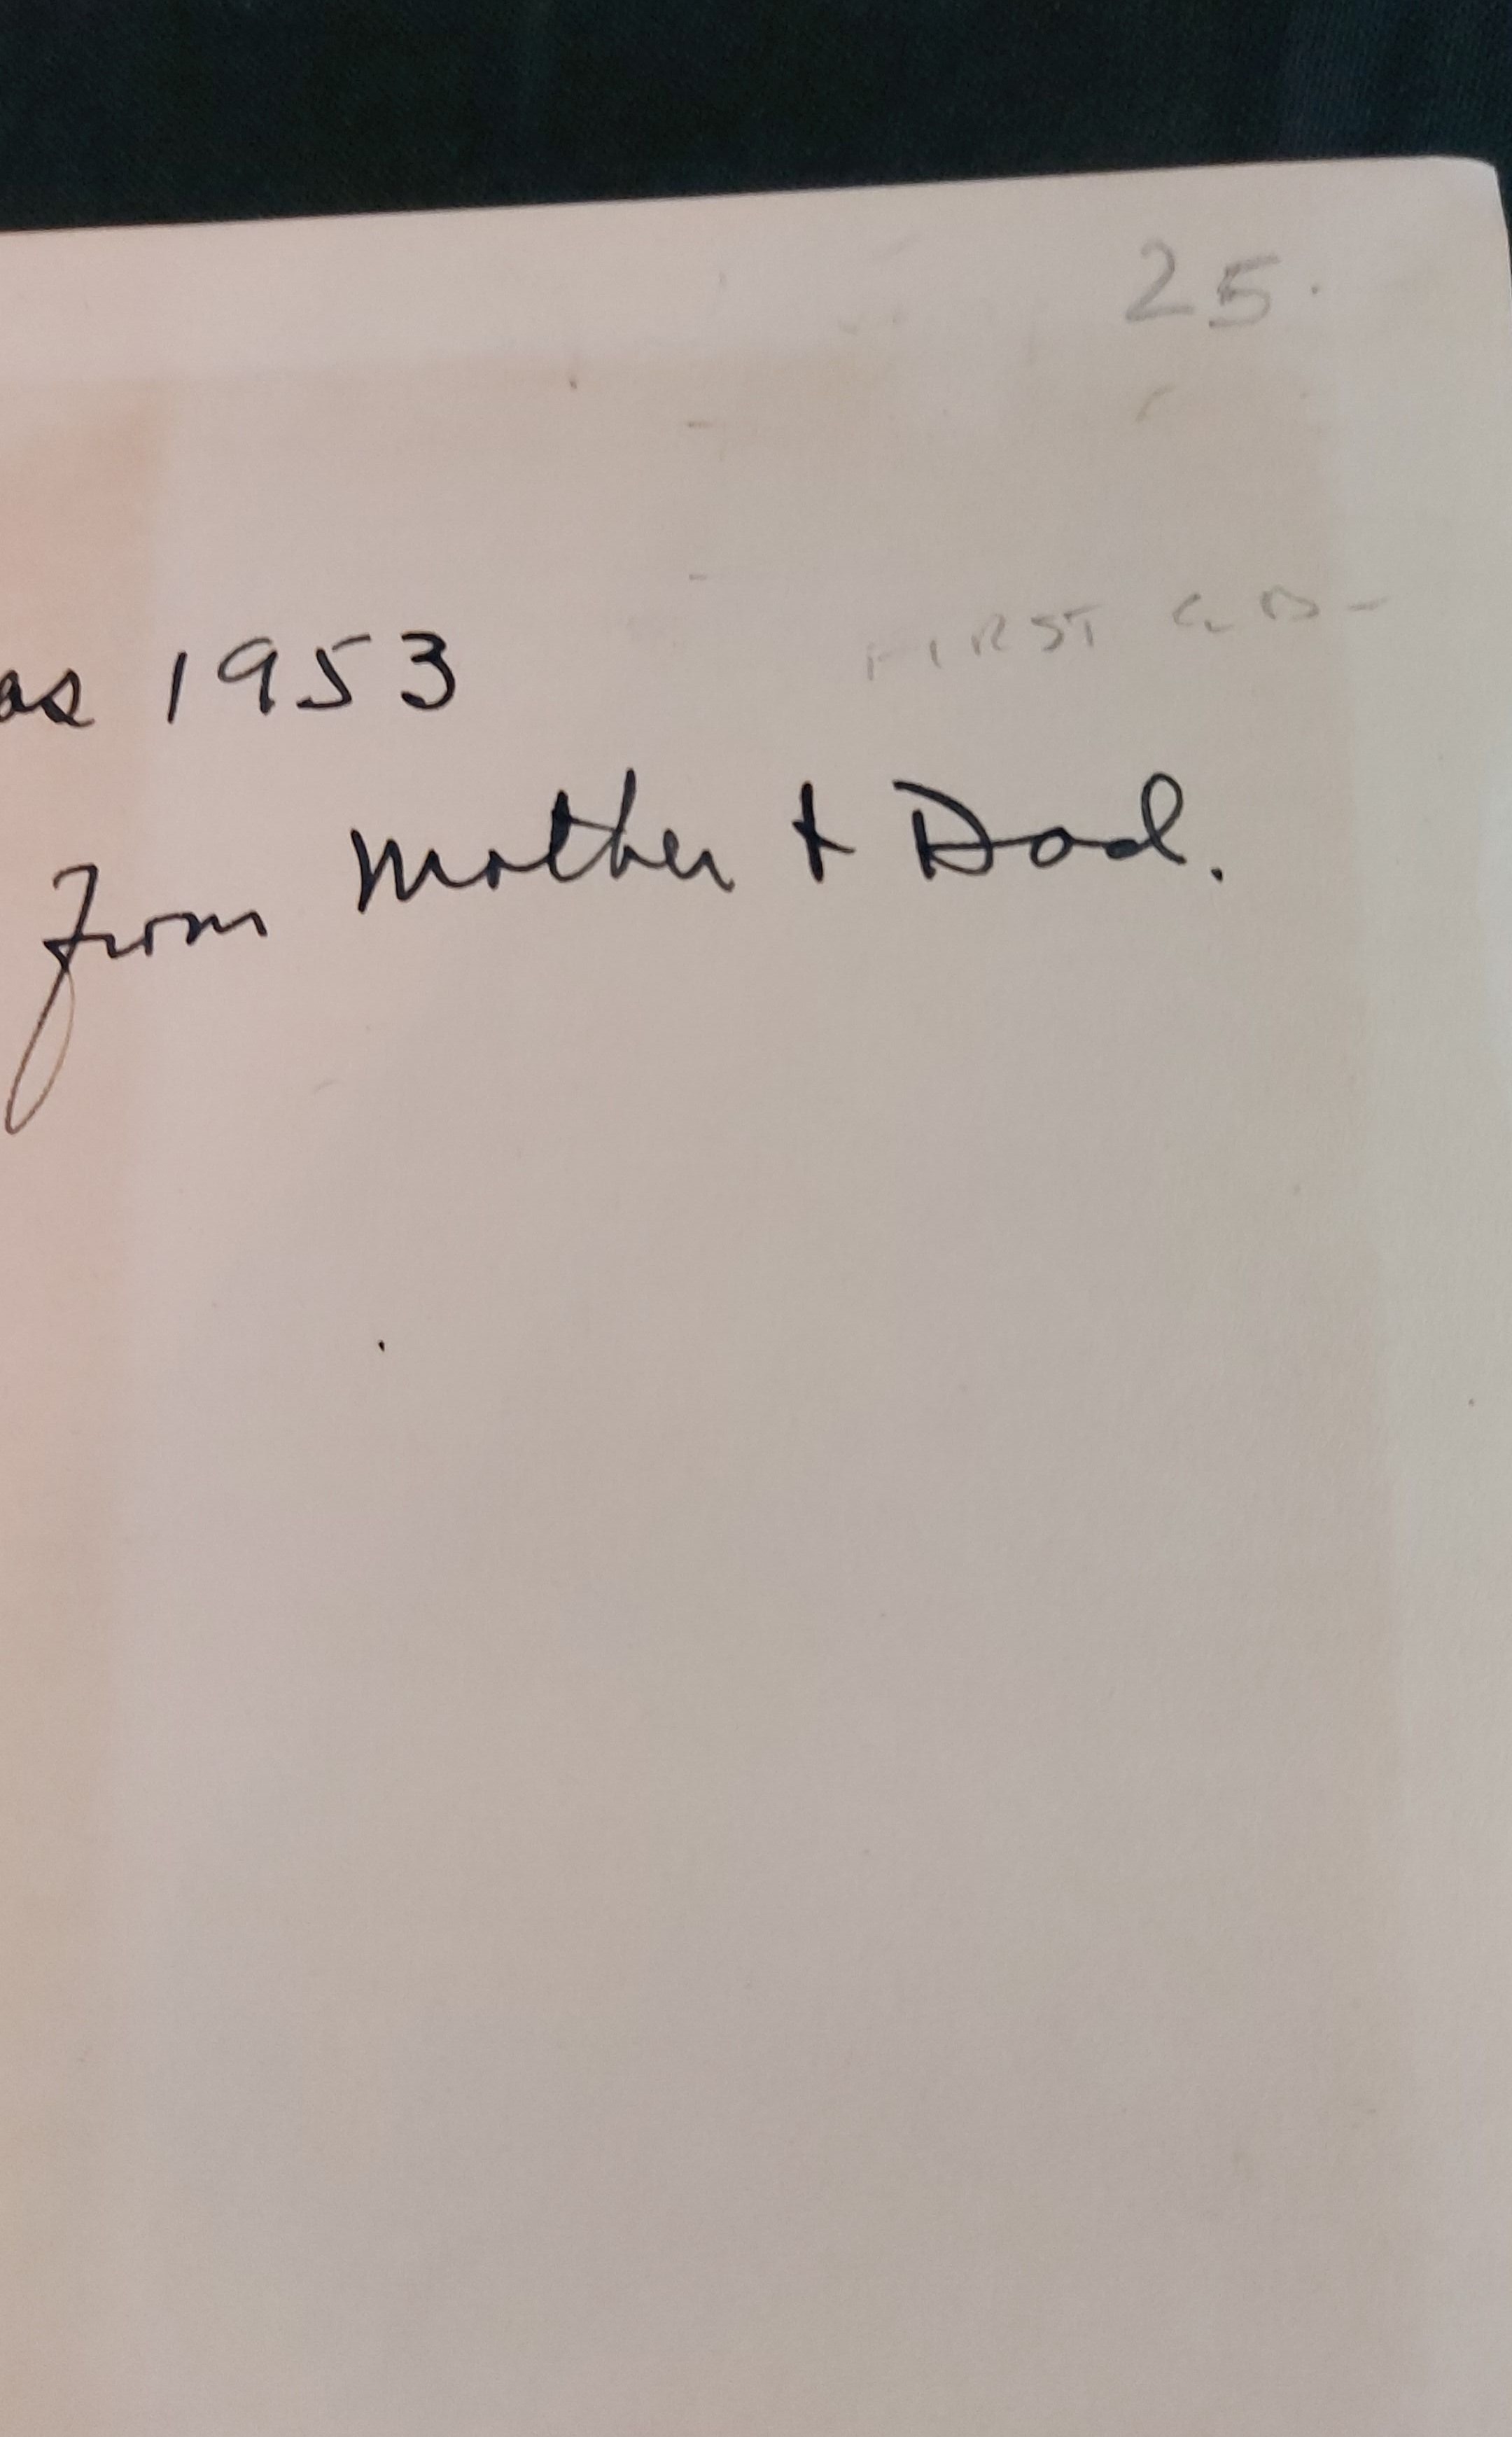 25.
FIRST ED-
as 1953
from Mother & Dad.